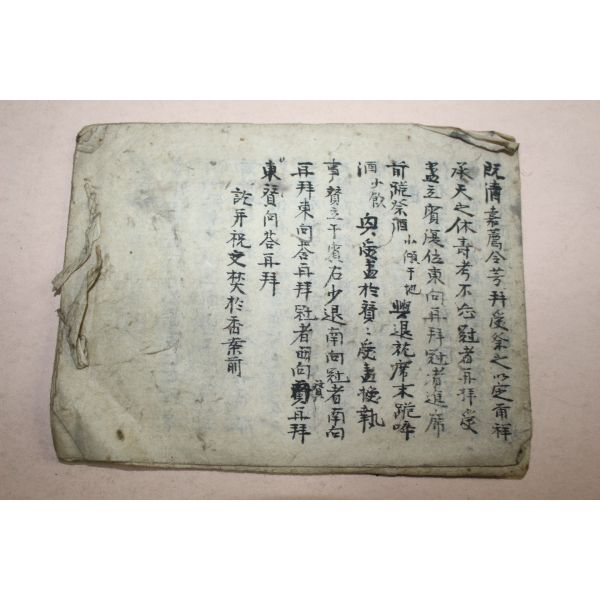 旣淸嘉薦令芳拜受祭之以定爾祥
承天之休壽考不忘冠者再拜受
盞立賓復位東向再拜冠者進席
前跪祭酒小傾于地興退就席末跪啐
酒小飮興受盞於贊〻受盞換執
事贊立于賓右少退南向冠者南向
再拜東向答再拜冠者西向贊再拜
東贊向答再拜
訖并祝文焚於香案前